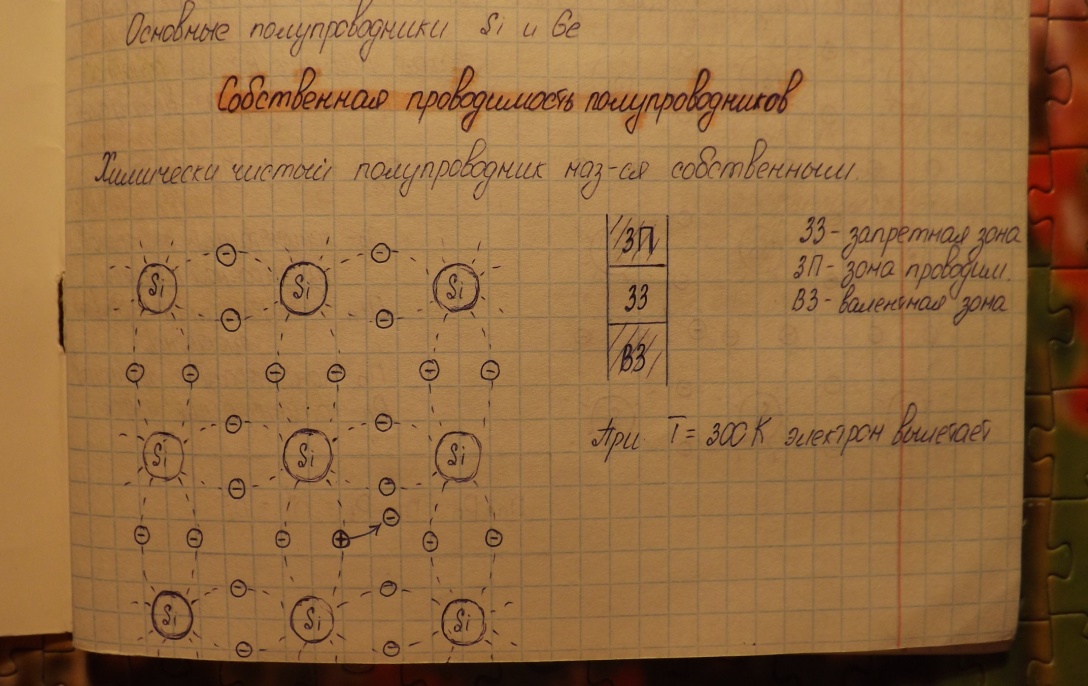 Основные полупроводники Si и Ge
Собственная проводимость полупроводников
Химически чистый полупроводник наз-ся собственным.
ЗП
ЗЗ
ВЗ
ЗЗ - запретная зона
ЗП - зона проводим.
ВЗ - валентная зона
При T = 300 K электрон вылетает
− −
Si Si Si
− −
− − − − − −
− −
Si Si Si
− −
−
− − − + − −
− −
Si Si Si
− −